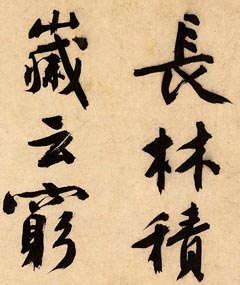 長林積
歲云窮